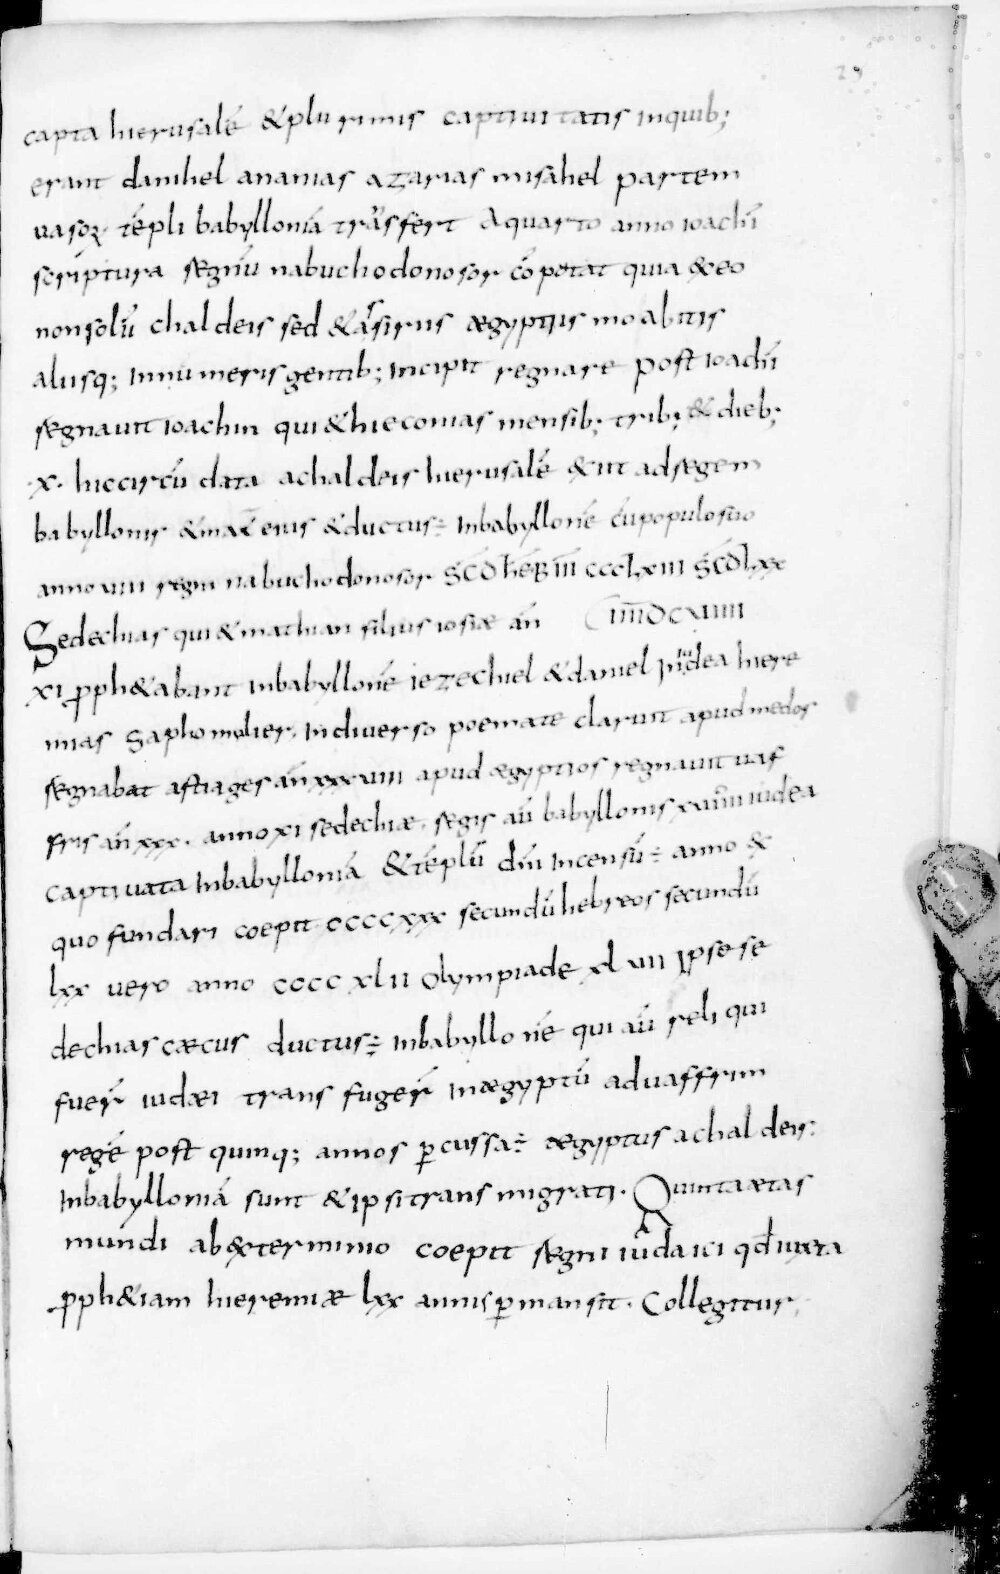 29
capta hierusalē & plurimis captiuitatis inquib;
erant danihel ananias azarias misahel partem
uasoꝝ tēpli babylloniā trāsfert Aquarto anno ioachī
scriptura regnū nabuchodonosor cōpotat quia & eo
nonsolū chaldeis sed & assiriis ægyptiis moabitis
aliisq; innumeris gentib; incipit regnare post ioachī
regnauit ioachin qui & hieconias mensib; trib; & dieb;
·x· hic circū data achaldeis hierusalē exiit adregem
babyllonis & mat̄ eius & ductus ÷ inbabyllonē cū populo suo
anno viii regni nabuchodonosor SCD̄ HEB̄ III ccclxiii SCD̄ lxx
Sedechias qui & mathian filius iosiæ an̄ IIIIDCXVIIII
xi ꝓph&abant inbabyllonē iezechiel & daniel Iniudea hiere
mias Sapho molier, indiuerso poemate claruit apud medos
regnabat astiages an̄ xxxviii apud ægyptios regnauit uaf
fris an̄ xxx. anno xi sedechiæ, regis aū babyllonis xviiii iudea
captiuata inbabylloniā & tēplū dn̄i incensū ÷ anno &
quo fundari coepit ccccxxx secundū hebreos secundū
lxx uero anno ccccxlii olympiade xlviii Ipse se
dechias cæcus ductus ÷ inbabyllonē qui aū reliqui
fuer̄ iudæi trans fuger̄ inægyptū ad uaffrim
regē post quinq; annos ꝑcussa ÷ ægyptus achaldeis:
Inbabylloniā sunt & ipsi transmigrati. Quinta ætas
mundi abexterminio coepit regni iudaici qd̄ iuxta
ꝓph&iam hieremiæ lxx annis ꝑmansit. Collegitur,